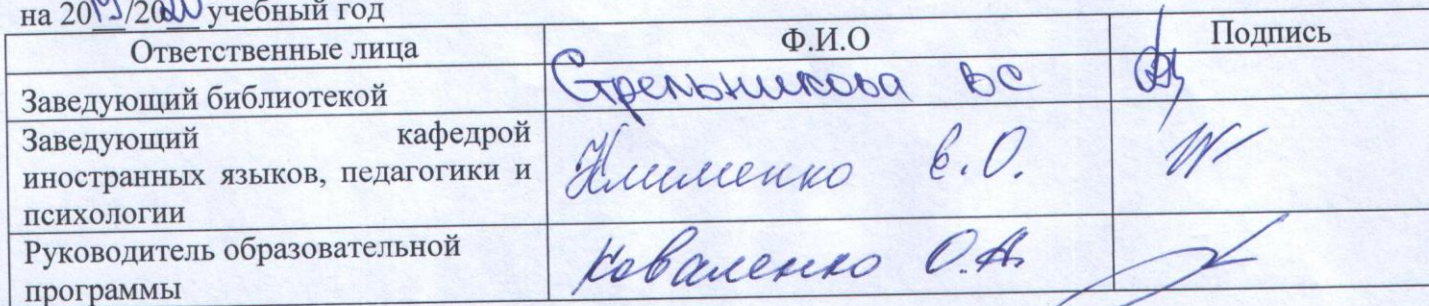 на 2019/2020 учебный год
Ответственные лица Ф.И.О Подпись
Заведующий библиотекой Стрельникова ВС
Заведующий кафедрой
иностранных языков, педагогики и Клименко Е.О.
психологии
Руководитель образовательной Коваленко О.А.
программы